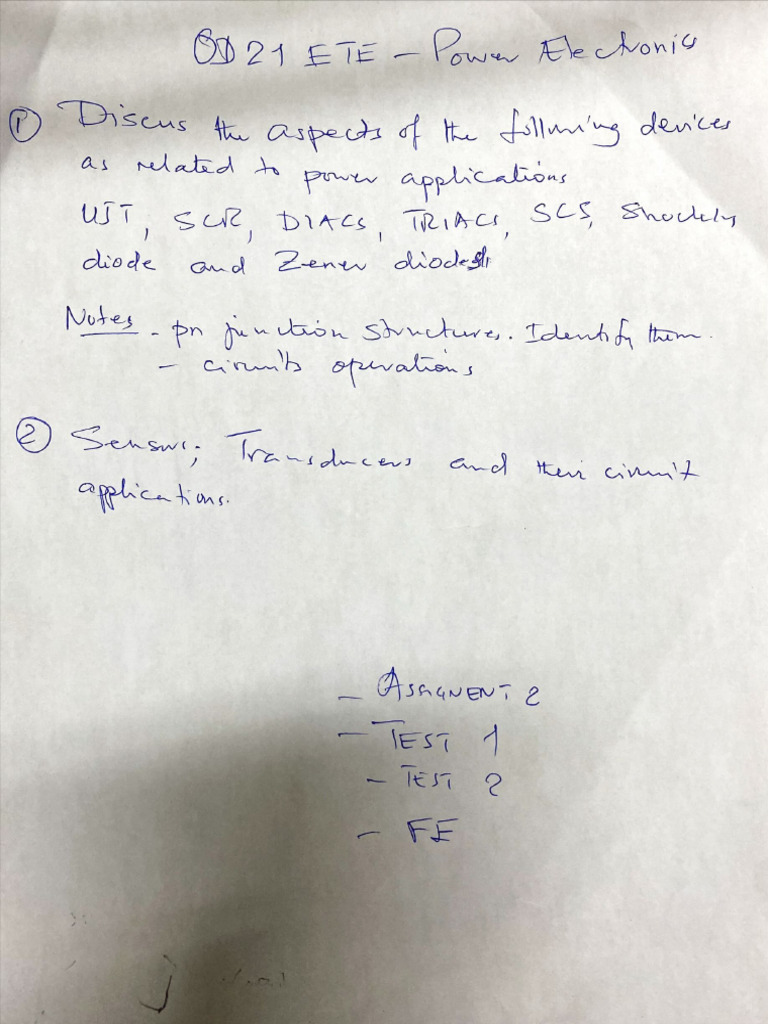 OD21 ETE - Power Electronics
① Discus the aspects of the following devices
as related to power applications
UJT, SCR, DIACs, TRIACs, SCS, Shockly
diode and Zener diodes
Notes - pn junction structures. Identify them.
- circuits operations
② Sensors; Transducers and their circuit
applications.
- ASSIGNENT 2
- TEST 1
- TEST 2
- FE